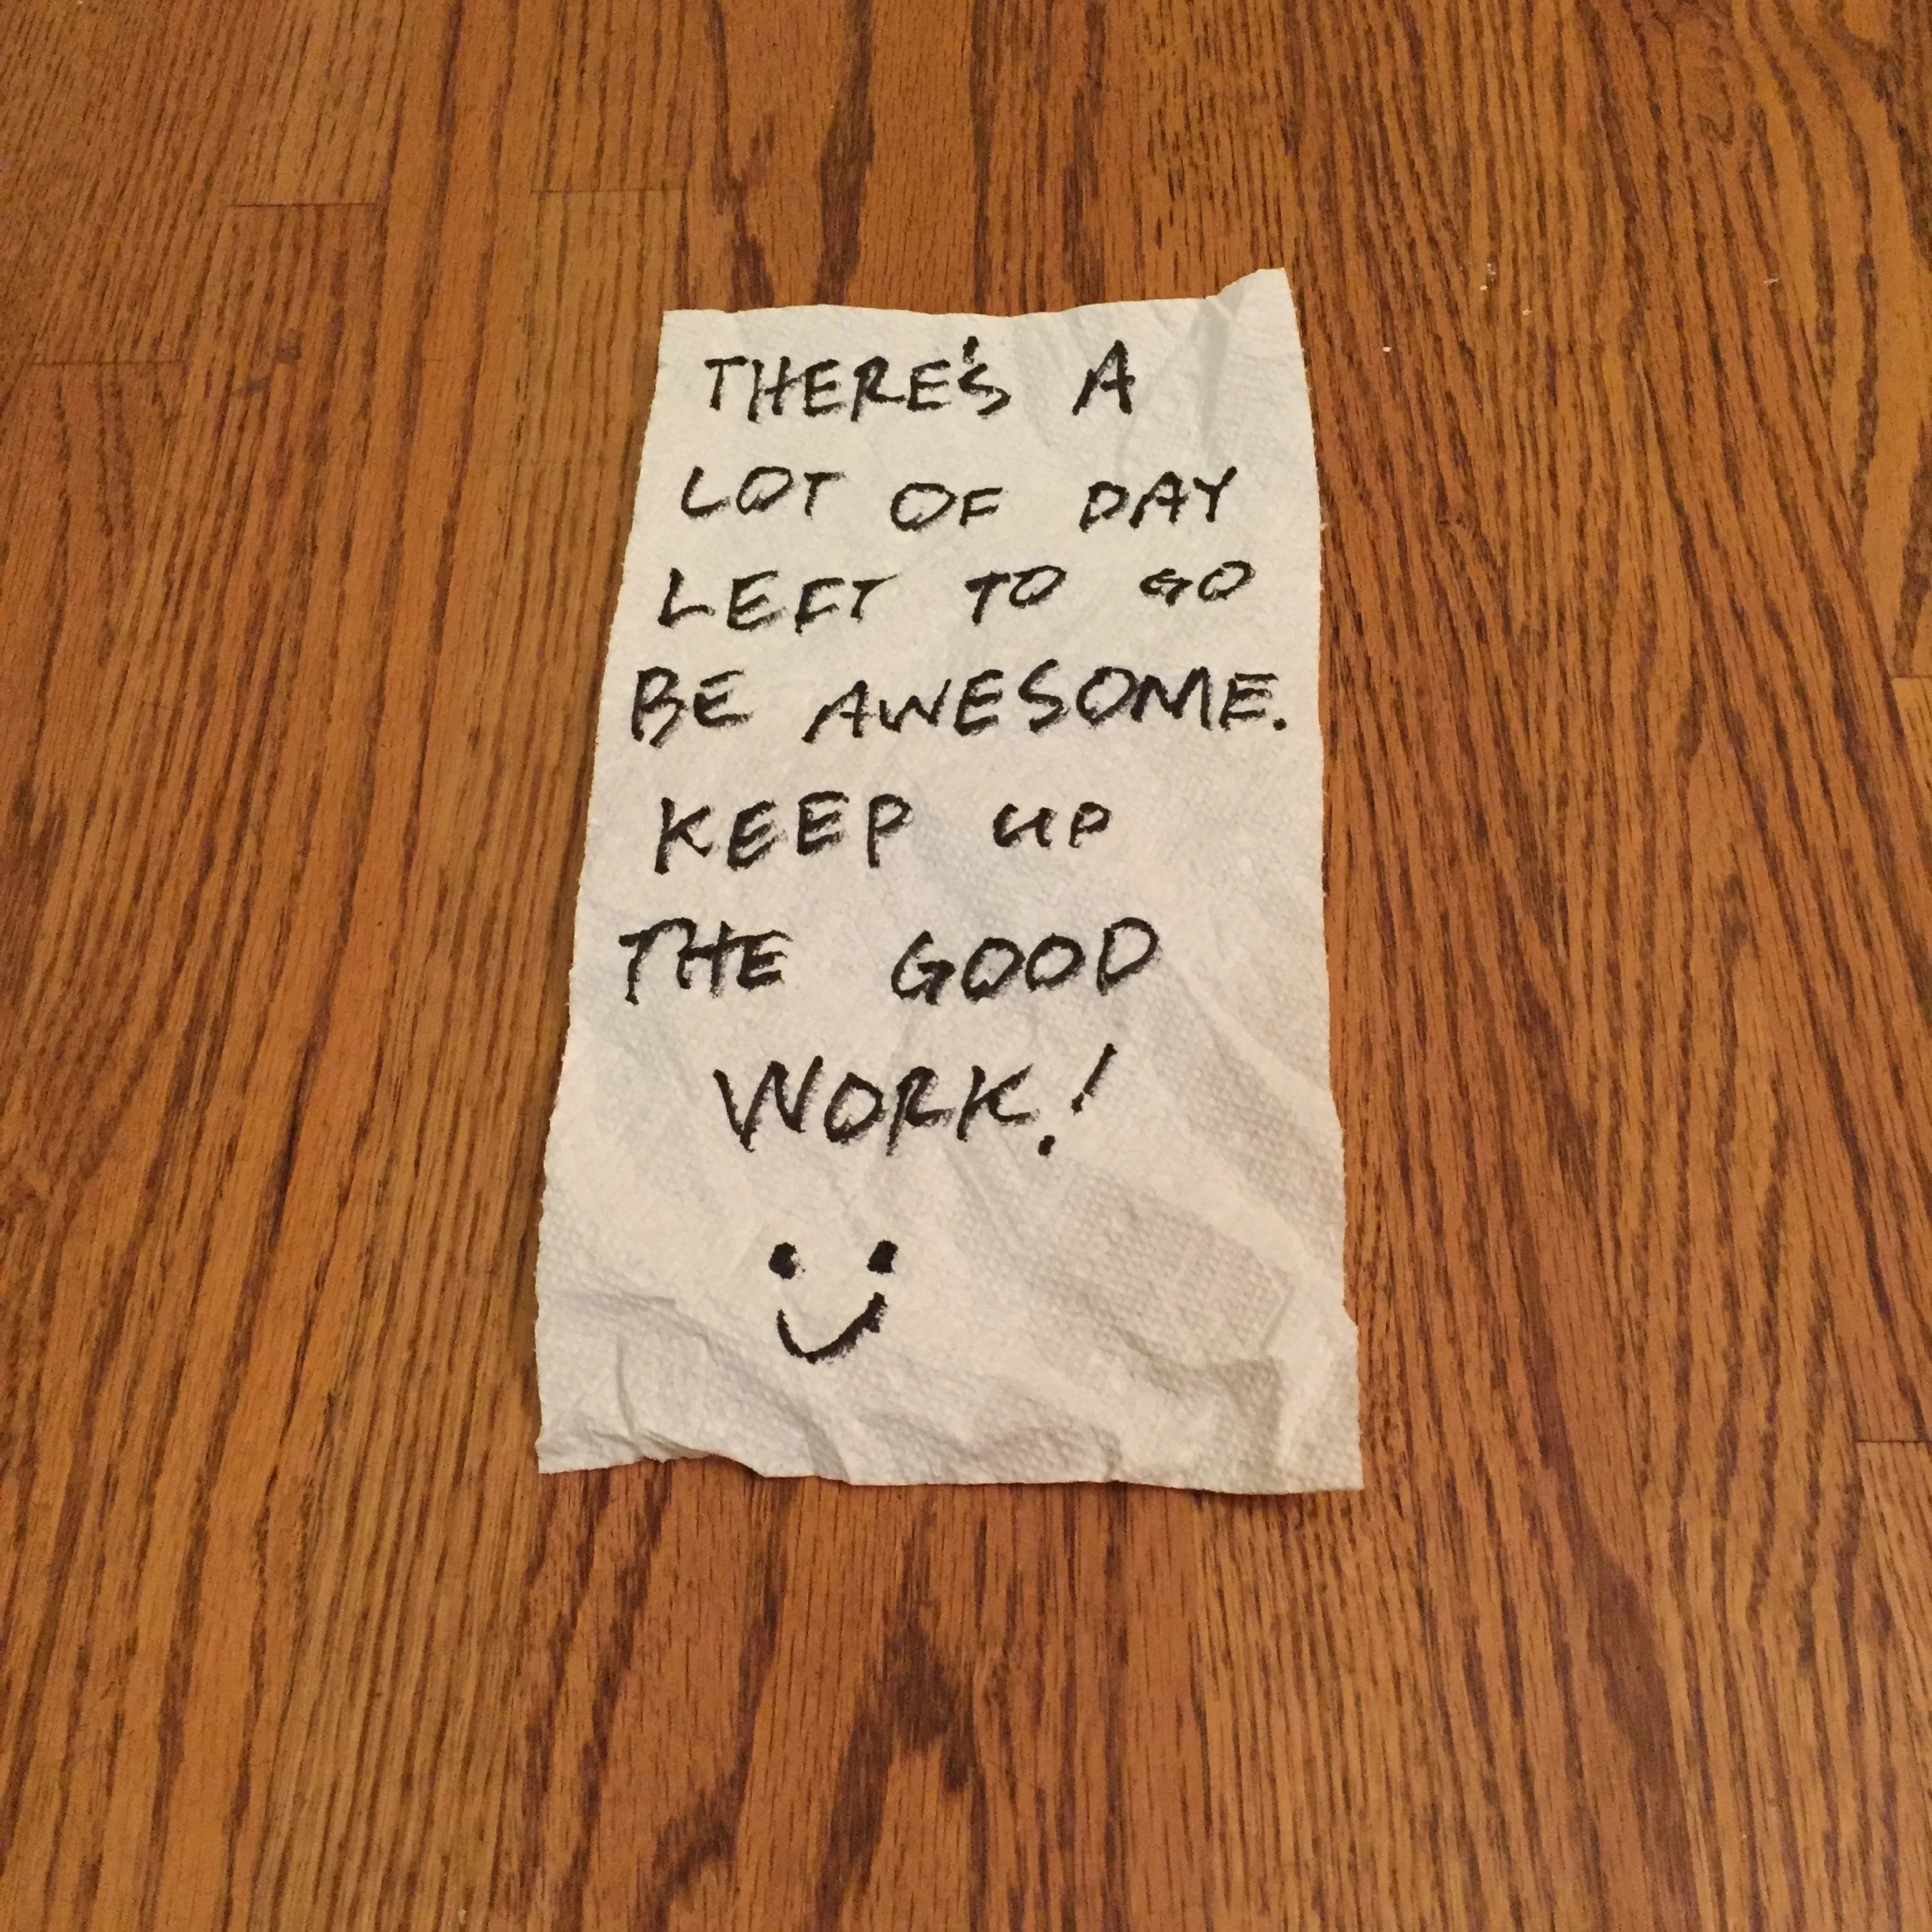 THERE'S A
LOT OF DAY
LEFT TO GO
BE AWESOME.
KEEP UP
THE GOOD
WORK!